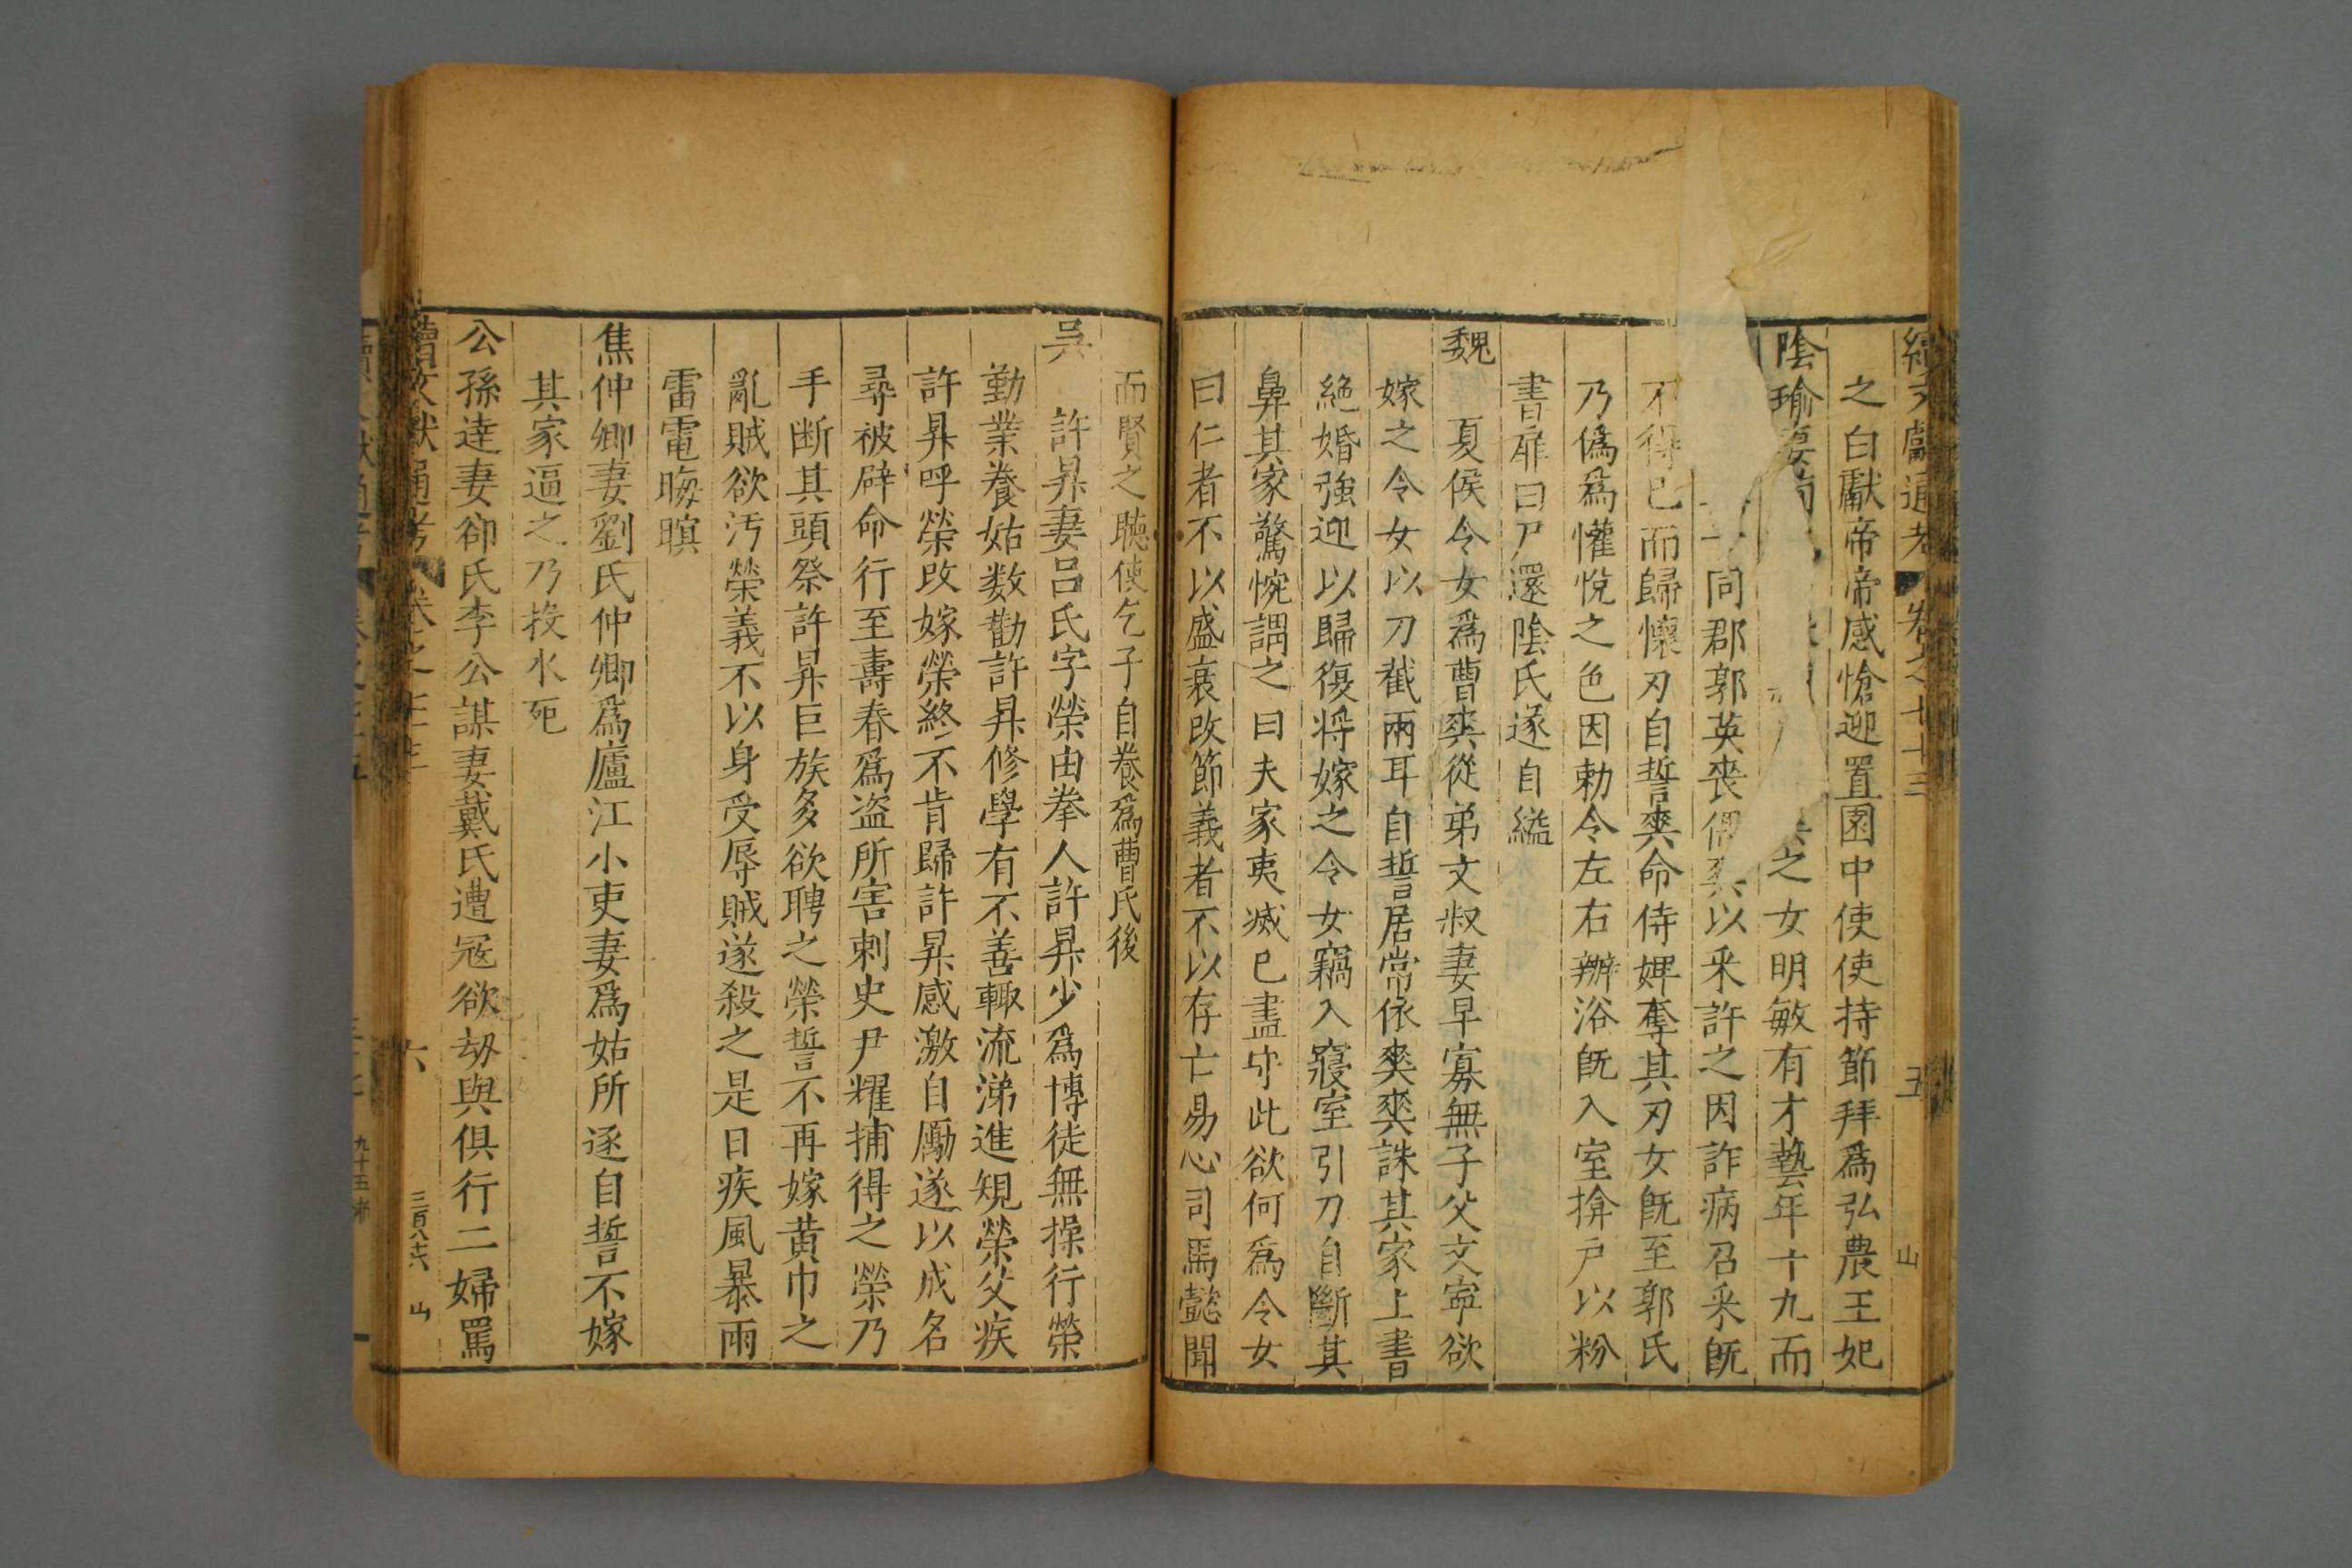 續文獻通考 卷之七十三 五 山
之白獻帝帝感愴迎置園中使使持節拜爲弘農王妃
陰瑜妻荀 之女明敏有才藝年十九而
同郡郭英喪偶爽以采許之因詐病召采旣
不得已而歸懷刃自誓爽命侍婢奪其刃女旣至郭氏
乃僞爲懽悅之色因勅令左右辦浴旣入室揜戶以粉
書扉曰尸還陰氏遂自縊
魏 夏侯令女爲曹爽從弟文叔妻早寡無子父文寧欲
嫁之令女以刀截兩耳自誓居常依爽爽誅其家上書
絶婚強迎以歸復将嫁之令女竊入寢室引刀自斷其
鼻其家驚惋謂之曰夫家夷滅已盡守此欲何爲令女
曰仁者不以盛衰改節義者不以存亡易心司馬懿聞
而賢之聽使乞子自養爲曹氏後
吳 許昇妻吕氏字榮由拳人許昇少爲博徒無操行榮
勤業養姑数勸許昇修學有不善輙流涕進規榮父疾
許昇呼榮改嫁榮終不肯歸許昇感激自勵遂以成名
尋被辟命行至壽春爲盗所害刺史尹耀捕得之榮乃
手断其頭祭許昇巨族多欲聘之榮誓不再嫁黄巾之
亂賊欲汚榮義不以身受辱賊遂殺之是日疾風暴雨
雷電晦暝
焦仲卿妻劉氏仲卿爲廬江小吏妻爲姑所逐自誓不嫁
其家逼之乃投水死
公孫達妻郤氏李公謀妻戴氏遭冦欲刼與俱行二婦罵
續文獻通考 卷之七十三 六 三百八十六 山
九十五